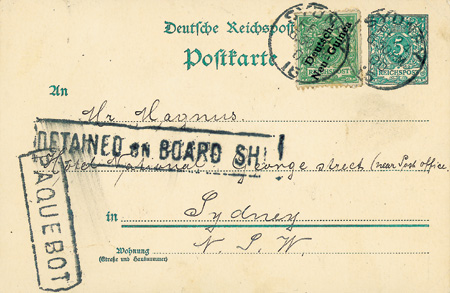 Deutsche Reichspost
Postkarte
Deutsch-
Neu-Guinea
REICHSPOST
5
REICHSPOST
SYDNEY
An
Mr Magnus.
DETAINED ON BOARD SHI
Hotel National George street (near Post office,
PAQUEBOT
in
Sydney
N. S. W.
Wohnung
(Straße und Hausnummer)